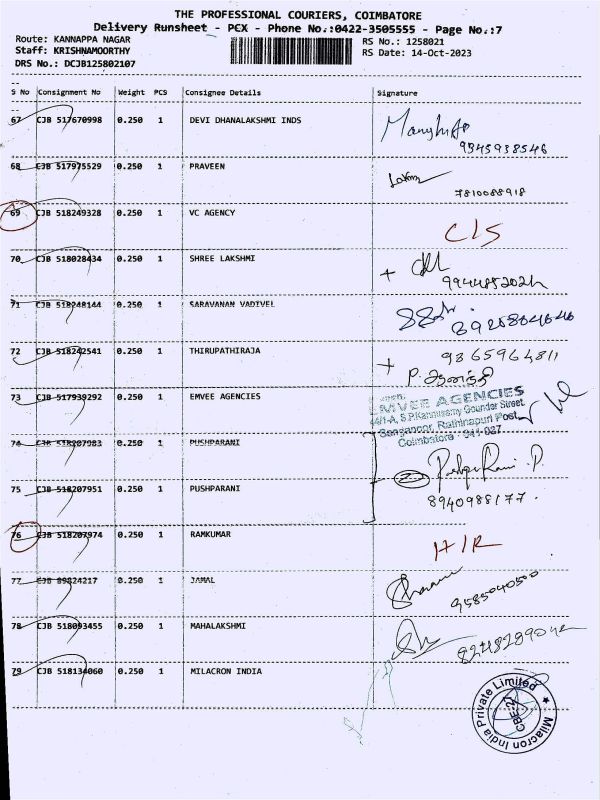 THE PROFESSIONAL COURIERS, COIMBATORE
Delivery Runsheet - PCX - Phone No.:0422-3505555 - Page No.:7
Route: KANNAPPA NAGAR RS No.: 1258021
Staff: KRISHNAMOORTHY RS Date: 14-Oct-2023
DRS No.: DCJB125802107
S No Consignment No Weight PCS Consignee Details Signature
67 CJB 517670998 0.250 1 DEVI DHANALAKSHMI INDS
9345938546
68 CJB 517975529 0.250 1 PRAVEEN
7810088918
69 CJB 518249328 0.250 1 VC AGENCY C/S
70 CJB 518028434 0.250 1 SHREE LAKSHMI
71 CJB 518248144 0.250 1 SARAVANAN VADIVEL
72 CJB 518242541 0.250 1 THIRUPATHIRAJA 9865964811
73 CJB 517939292 0.250 1 EMVEE AGENCIES EMVEE AGENCIES
44/1-A, S.P.Kannusamy Gounder Street,
Sanganoor, Rathinapuri Post,
Coimbatore - 641 027.
74 CJB 518207983 0.250 1 PUSHPARANI
75 CJB 518207951 0.250 1 PUSHPARANI 8940988177.
76 CJB 518207974 0.250 1 RAMKUMAR H/R
77 CJB 89824217 0.250 1 JAMAL
9585040500
78 CJB 518093455 0.250 1 MAHALAKSHMI 8248289042
79 CJB 518134060 0.250 1 MILACRON INDIA
Milacron India Private Limited
CBE-27